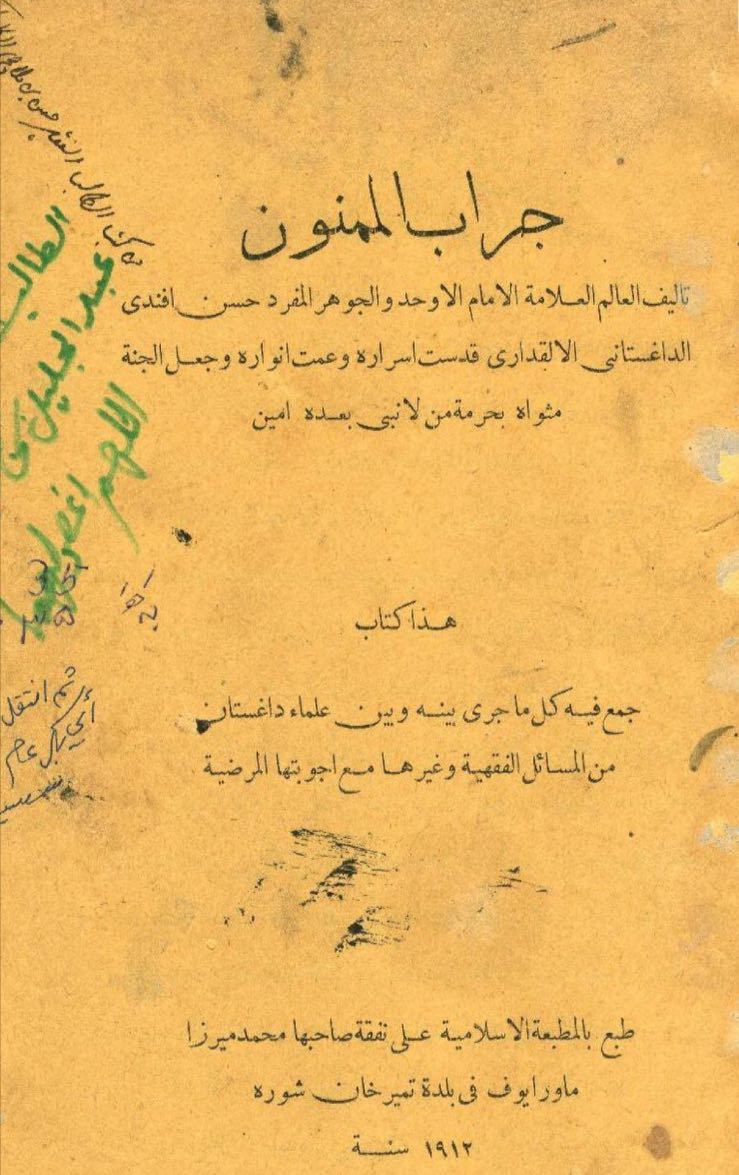 جراب الممنون
تاليف العالم العلامة الامام الاوحد والجوهر المفرد حسن افندى
الداغستانى الالقدارى قدست اسراره وعمت انواره وجعل الجنة
مثواه بحرمة من لا نبى بعده امين
هذا كتاب
جمع فيه كل ما جرى بينه وبين علماء داغستان
من المسائل الفقهية وغيرها مع اجوبتها المرضية
طبع بالمطبعة الاسلامية على نفقة صاحبها محمد ميرزا
ماورايوف فى بلدة تمير خان شوره
سنة ١٩١٢
الطالب
عبد الجليل
اللهم
اغفر
ثم انتقل